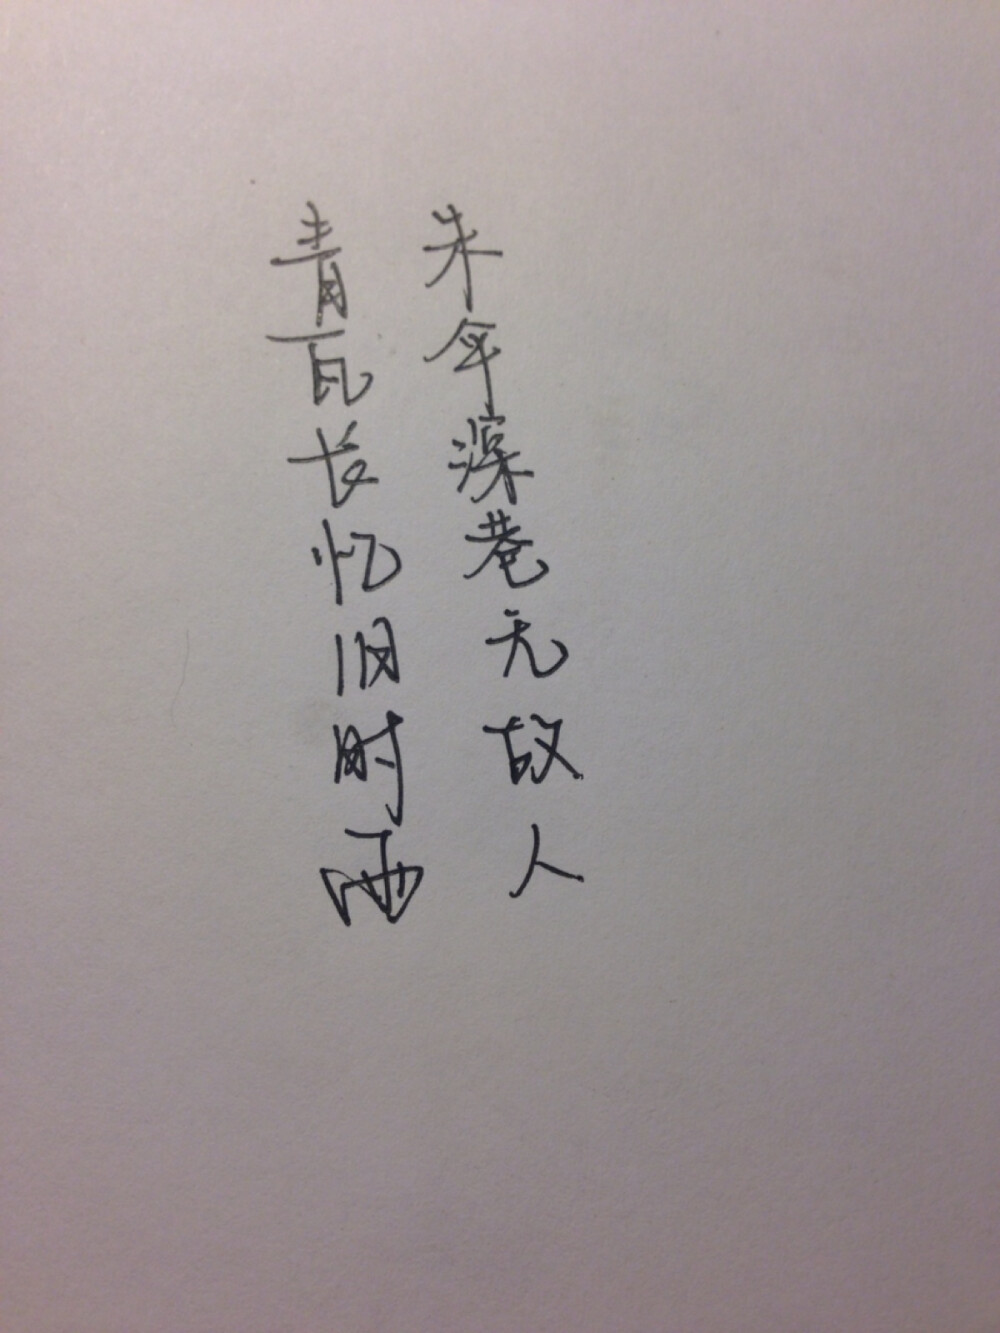 青瓦长忆旧时雨
朱伞深巷无故人